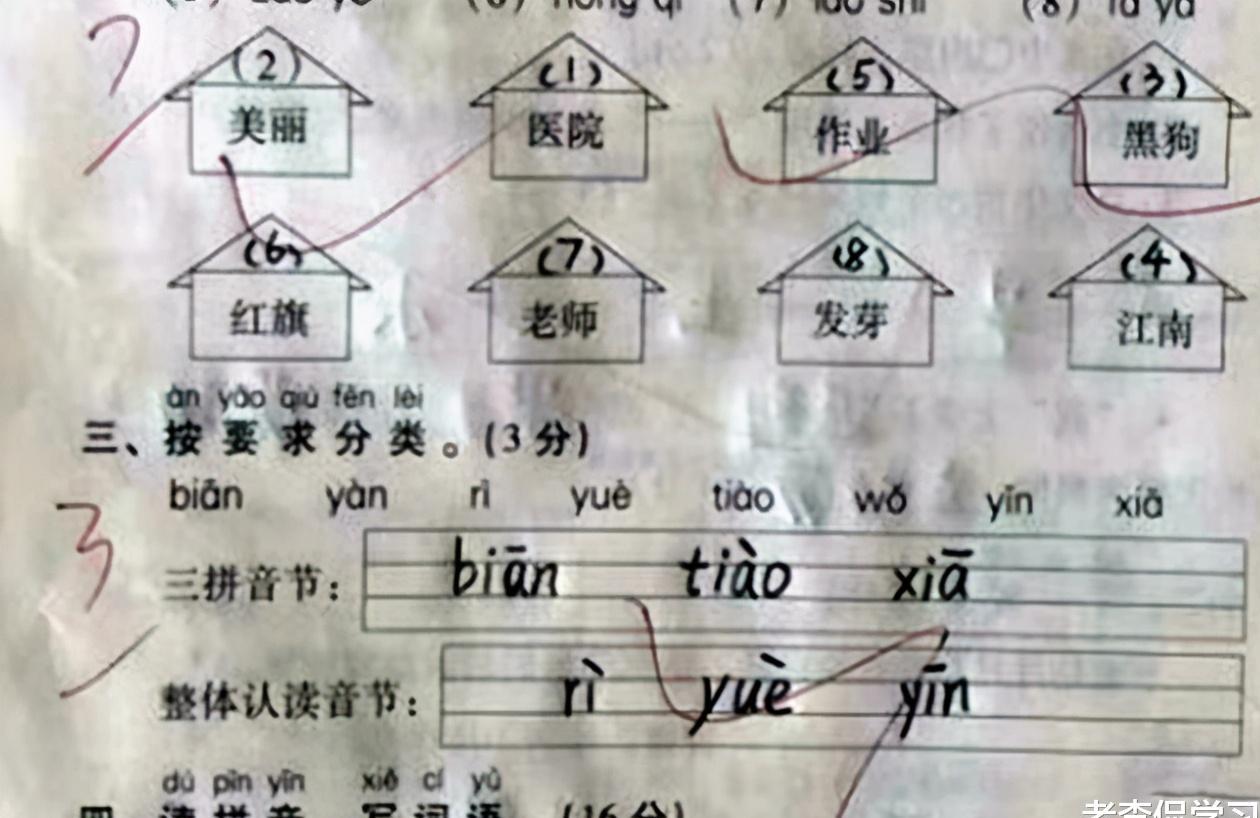 (6) hóng qí (7) lǎo shī (8) fā yá
7
(2) (1) (5) (3)
美丽 医院 作业 黑狗
(6) (7) (8) (4)
红旗 老师 发芽 江南
àn yāo qiú fēn lèi
三、按要求分类。(3分)
biān yàn rì yuè tiào wǒ yīn xiā
3
三拼音节: biān tiào xiā
整体认读音节: rì yuè yīn
dú pīn yīn xiě cí yǔ
四 读拼音 写词语 (16分)